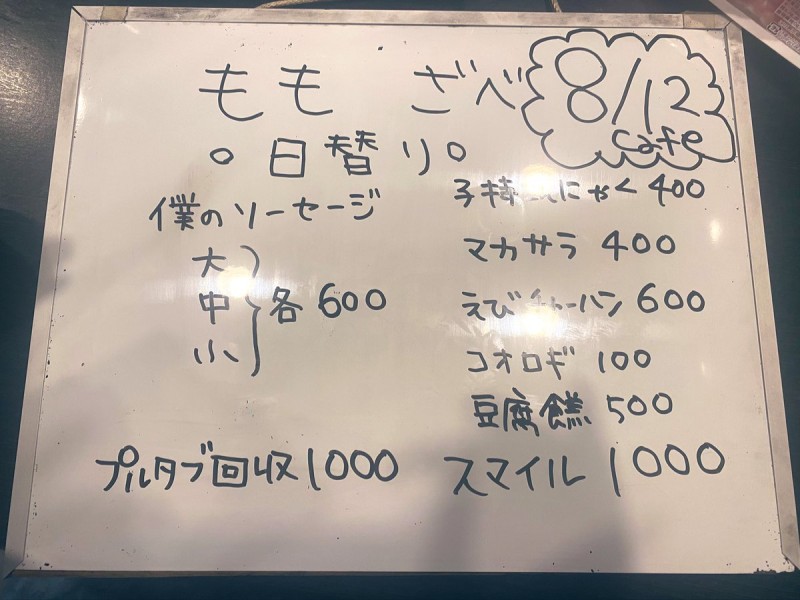 もも ざべ
8/12
cafe
○日替り○
僕のソーセージ
大
中 各600
小
子持 にゃく 400
マカサラ 400
えびチャーハン 600
コオロギ 100
豆腐 500
プルタブ回収1000
スマイル 1000